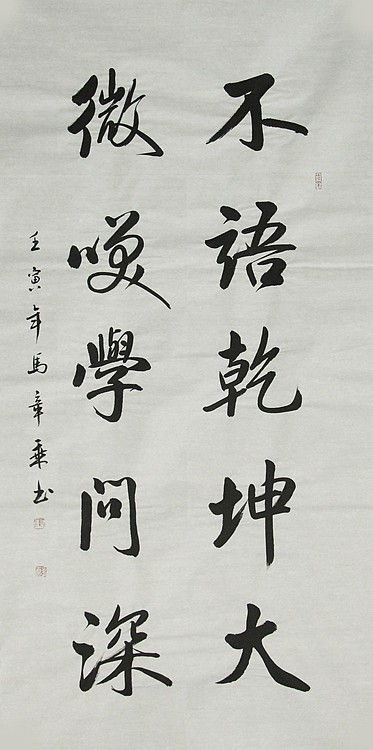 不語乾坤大
微嘆學問深
壬寅年馬章乘书